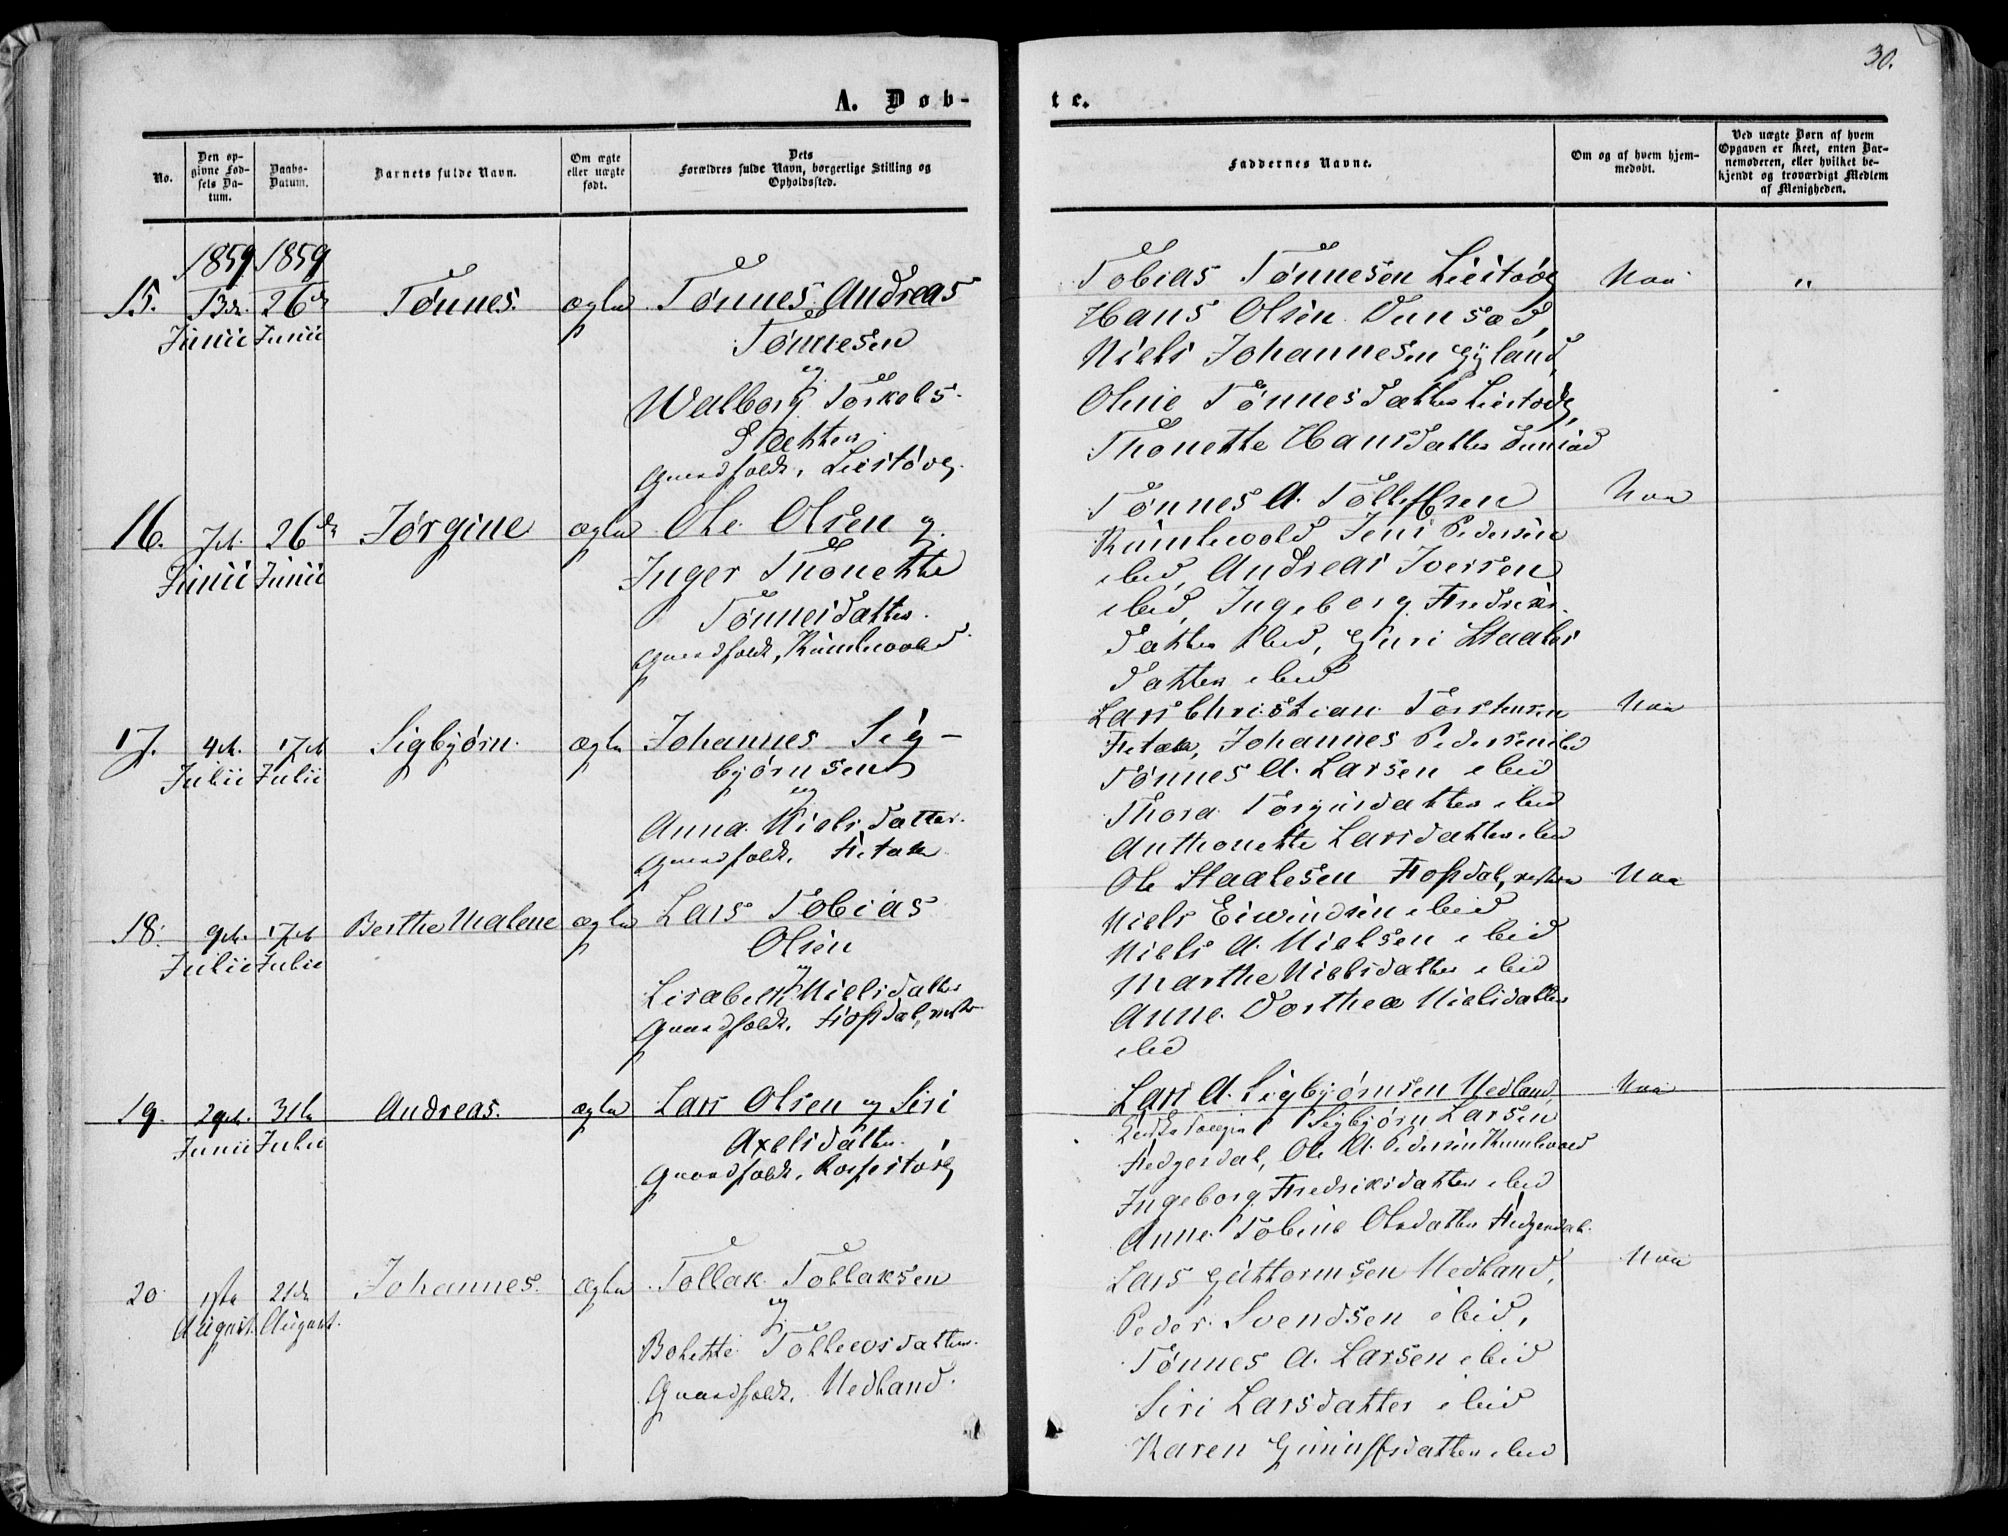 30.
A. Døb-
te.
No.
Den op-
givne Fød-
sels Da-
tum.
Daabs-
Datum.
Barnets fulde Navn.
Om ægte
eller uægte
født.
Dets
Forældres fulde Navn, borgerlige Stilling og
Opholdssted.
Faddernes Navne.
Om og af hvem hjem-
medøbt.
Ved uægte Børn af hvem
Opgaven er skeet, enten Bar-
nemoderen, eller hvilket be-
kjendt og troværdigt Medlem
af Menigheden.
1859 1859
15. 13de 26de Tønnes. ægte Tønnes Andreas
Junii Junii Tønnesen
og
Walborg Torkels-
datter
Gaardfolk, Liestøvg.
Tobias Tønnesen Liestøvg
Hans Olsen Dunsæd,
Niels Johannesen Gyland,
Oline Tønnesdatter Liestøvg,
Thonette Hansdatter Dunsæd
Nei "
16. 7de 26de Jørgine ægte Ole Olsen og
Junii Junii Inger Thonette
Tønnesdatter.
Gaardfolk,
Tønnes A. Tollefsen
Jens Pedersen
ibid, Andreas Iversen
ibid, Ingeborg Fredriks-
datter ibid, Guri Staales
datter ibid
Nei
17. 4de 17de Sigbjørn. ægte Johannes Sig-
Julii Julii bjørnsen
og
Anna Nielsdatter.
Gaardfolk,
Lars Christian Torstensen
Johannes Pedersen ibid
Tønnes A. Larsen ibid
Thora Torgersdatter ibid
Anthonette Larsdatter ibid
Nei
18. 9de 17de Berthe Malene ægte Lars Tobias
Julii Julii Olsen
og
Lisabeth Nielsdatter
Gaardfolk, Fiosdal, vestre
Ole Staalesen Fiosdal, vestre
Niels Eivindsen ibid
Niels A. Nielsen ibid
Marthe Nielsdatter ibid
Anne Dorthea Nielsdatter
ibid
Nei
19. 29de 31te Andreas. ægte Lars Olsen og Siri
Junii Julii Axelsdatter.
Gaardfolk,
Lars A. Sigbjørnsen Nedland,
Sigbjørn Larsen
Ole A. Pedersen
Ingeborg Fredriksdatter ibid
Anne Tobine Olsdatter
Nei
20 1ste 21de Johannes. ægte Tollak Tollaksen
August. August. og
Bolette Tollevsdatter.
Gaardfolk, Nedland.
Lars Guttormsen Nedland,
Peder Svendsen ibid,
Tønnes A. Larsen ibid
Siri Larsdatter ibid
Karen Gunulfsdatter ibid
Nei